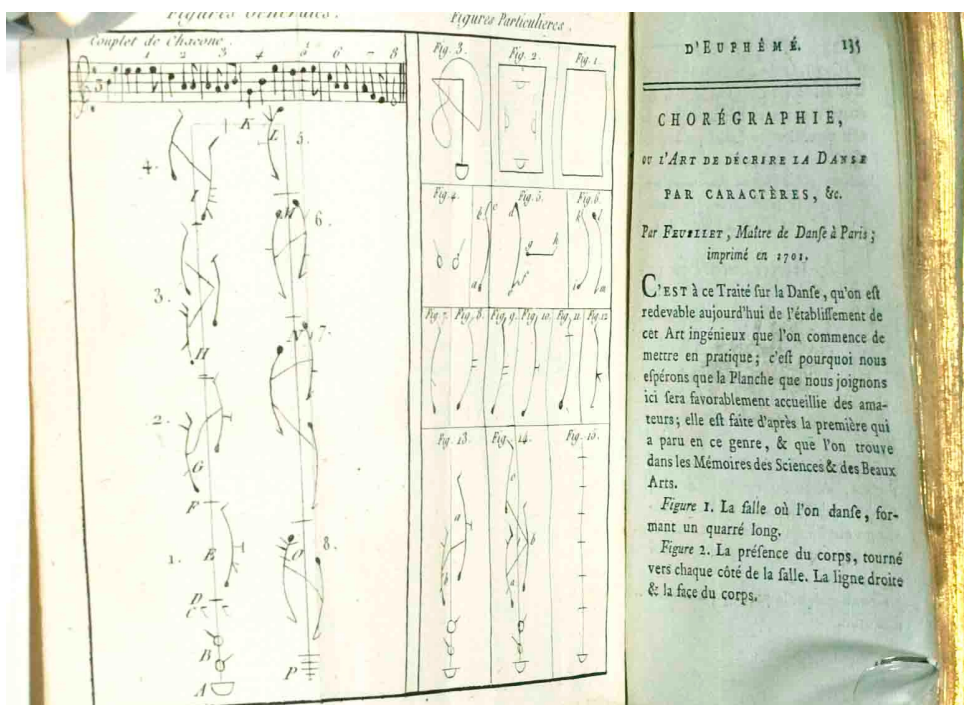 Figures Générales.
Figures Particulieres.
Couplet de Chacone
1 2 3 4 5 6 7 8
3
K
L
4.
5.
I
M
6.
3.
H
N
7.
2.
G
F
E
1.
O
8.
D
C
B
A
P
Fig. 3.
Fig. 2.
Fig. 1.
Fig. 4.
Fig. 5.
Fig. 6.
b c d
g h
k l
a f i m
Fig. 7.
Fig. 8.
Fig. 9.
Fig. 10.
Fig. 11.
Fig. 12
Fig. 13.
Fig. 14.
Fig. 15.
a
b
c
b
a
D'EUPHÉMÉ. 135
CHORÉGRAPHIE,
OU L'ART DE DÉCRIRE LA DANSE
PAR CARACTÈRES, &c.
Par FEUILLET, Maître de Danſe à Paris;
imprimé en 1701.
C'EST à ce Traité ſur la Danſe, qu'on eſt
redevable aujourd'hui de l'établiſſement de
cet Art ingénieux que l'on commence de
mettre en pratique; c'eſt pourquoi nous
eſpérons que la Planche que nous joignons
ici ſera favorablement accueillie des ama-
teurs; elle eſt faite d'après la première qui
a paru en ce genre, & que l'on trouve
dans les Mémoires des Sciences & des Beaux
Arts.
Figure 1. La ſalle où l'on danſe, for-
mant un quarré long.
Figure 2. La préſence du corps, tourné
vers chaque côté de la ſalle. La ligne droite
& la face du corps.